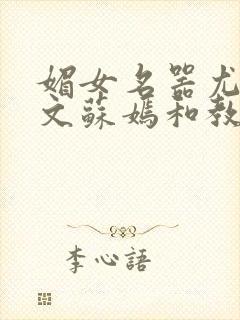 媚女名器尤
文蘇媽和教
李心語